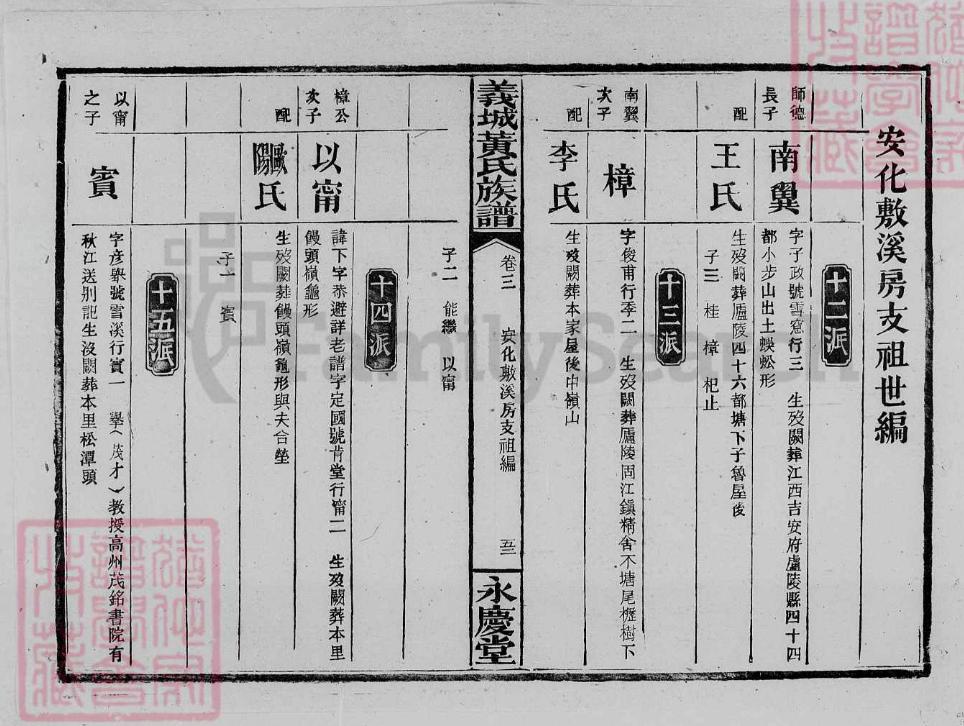 安化敷溪房支祖世編
十二派
師德長子
南翼
字子政號雪窓行三　生歿闕葬江西吉安府廬陵縣四十四
都小步山出土蜈蚣形
配
王氏
生歿闕葬廬陵四十六都塘下子魯屋後
子三　桂　樟　杞止
十三派
南翼次子
樟
字俊甫行季二　生歿闕葬廬陵固江鎮精舍不塘尾櫪樹下
配
李氏
生歿闕葬本家屋後中嶺山
義城黃氏族譜
卷三　安化敷溪房支祖編　五三
永慶堂
子二　能繼　以甯
十四派
樟公次子
以甯
諱下字恭避詳老譜字定國號肯堂行甯二　生歿闕葬本里
饅頭嶺龜形
配
歐陽氏
生歿闕葬饅頭嶺龜形與夫合塋
子一　賓
十五派
以甯之子
賓
字彥舉號雪溪行賓一　舉（茂才）教授高州茂銘書院有
秋江送別記生沒闕葬本里松潭頭
FamilySearch